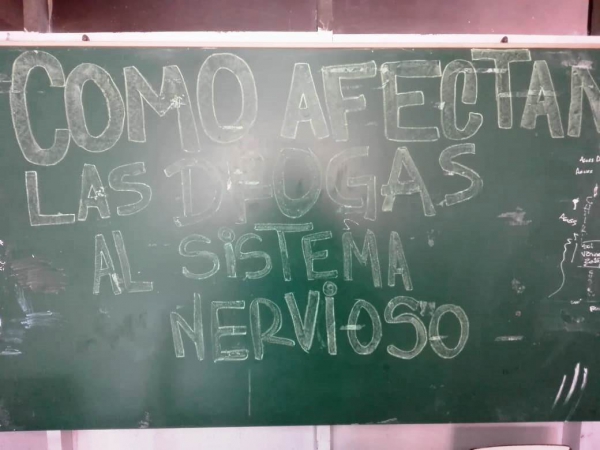 COMO AFECTAN
LAS DROGAS
AL SISTEMA
NERVIOSO